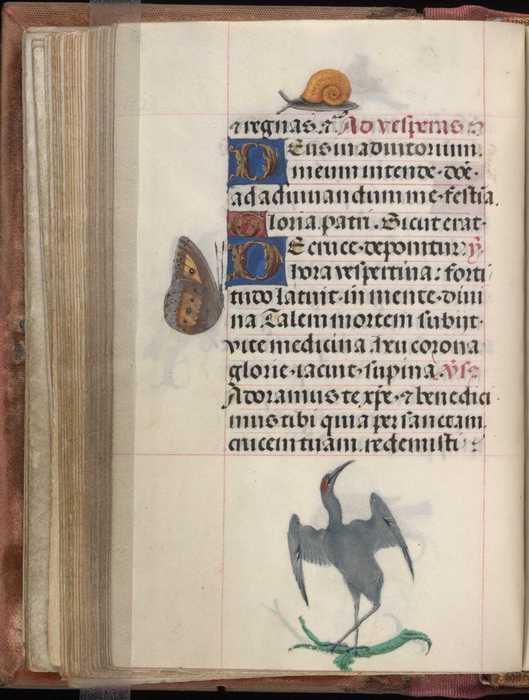 et regnas. etc̄ Ad vesperas
Deus in adiutorium
meum intende. do͞e.
ad adiuuandum me. festia.
Gloria. patri. Sicut erat.
De cruce. deponitur: ym̄
hora vespertina: forti
tudo latuit. in mente. diui
na. Talem mortem subijt.
vite medicina. Ixu corona
glorie. iacuit. supina. ꝟse
Adoramus te xp̄e. et benedici
mus tibi quia per sanctam.
crucem tuam. redemisti